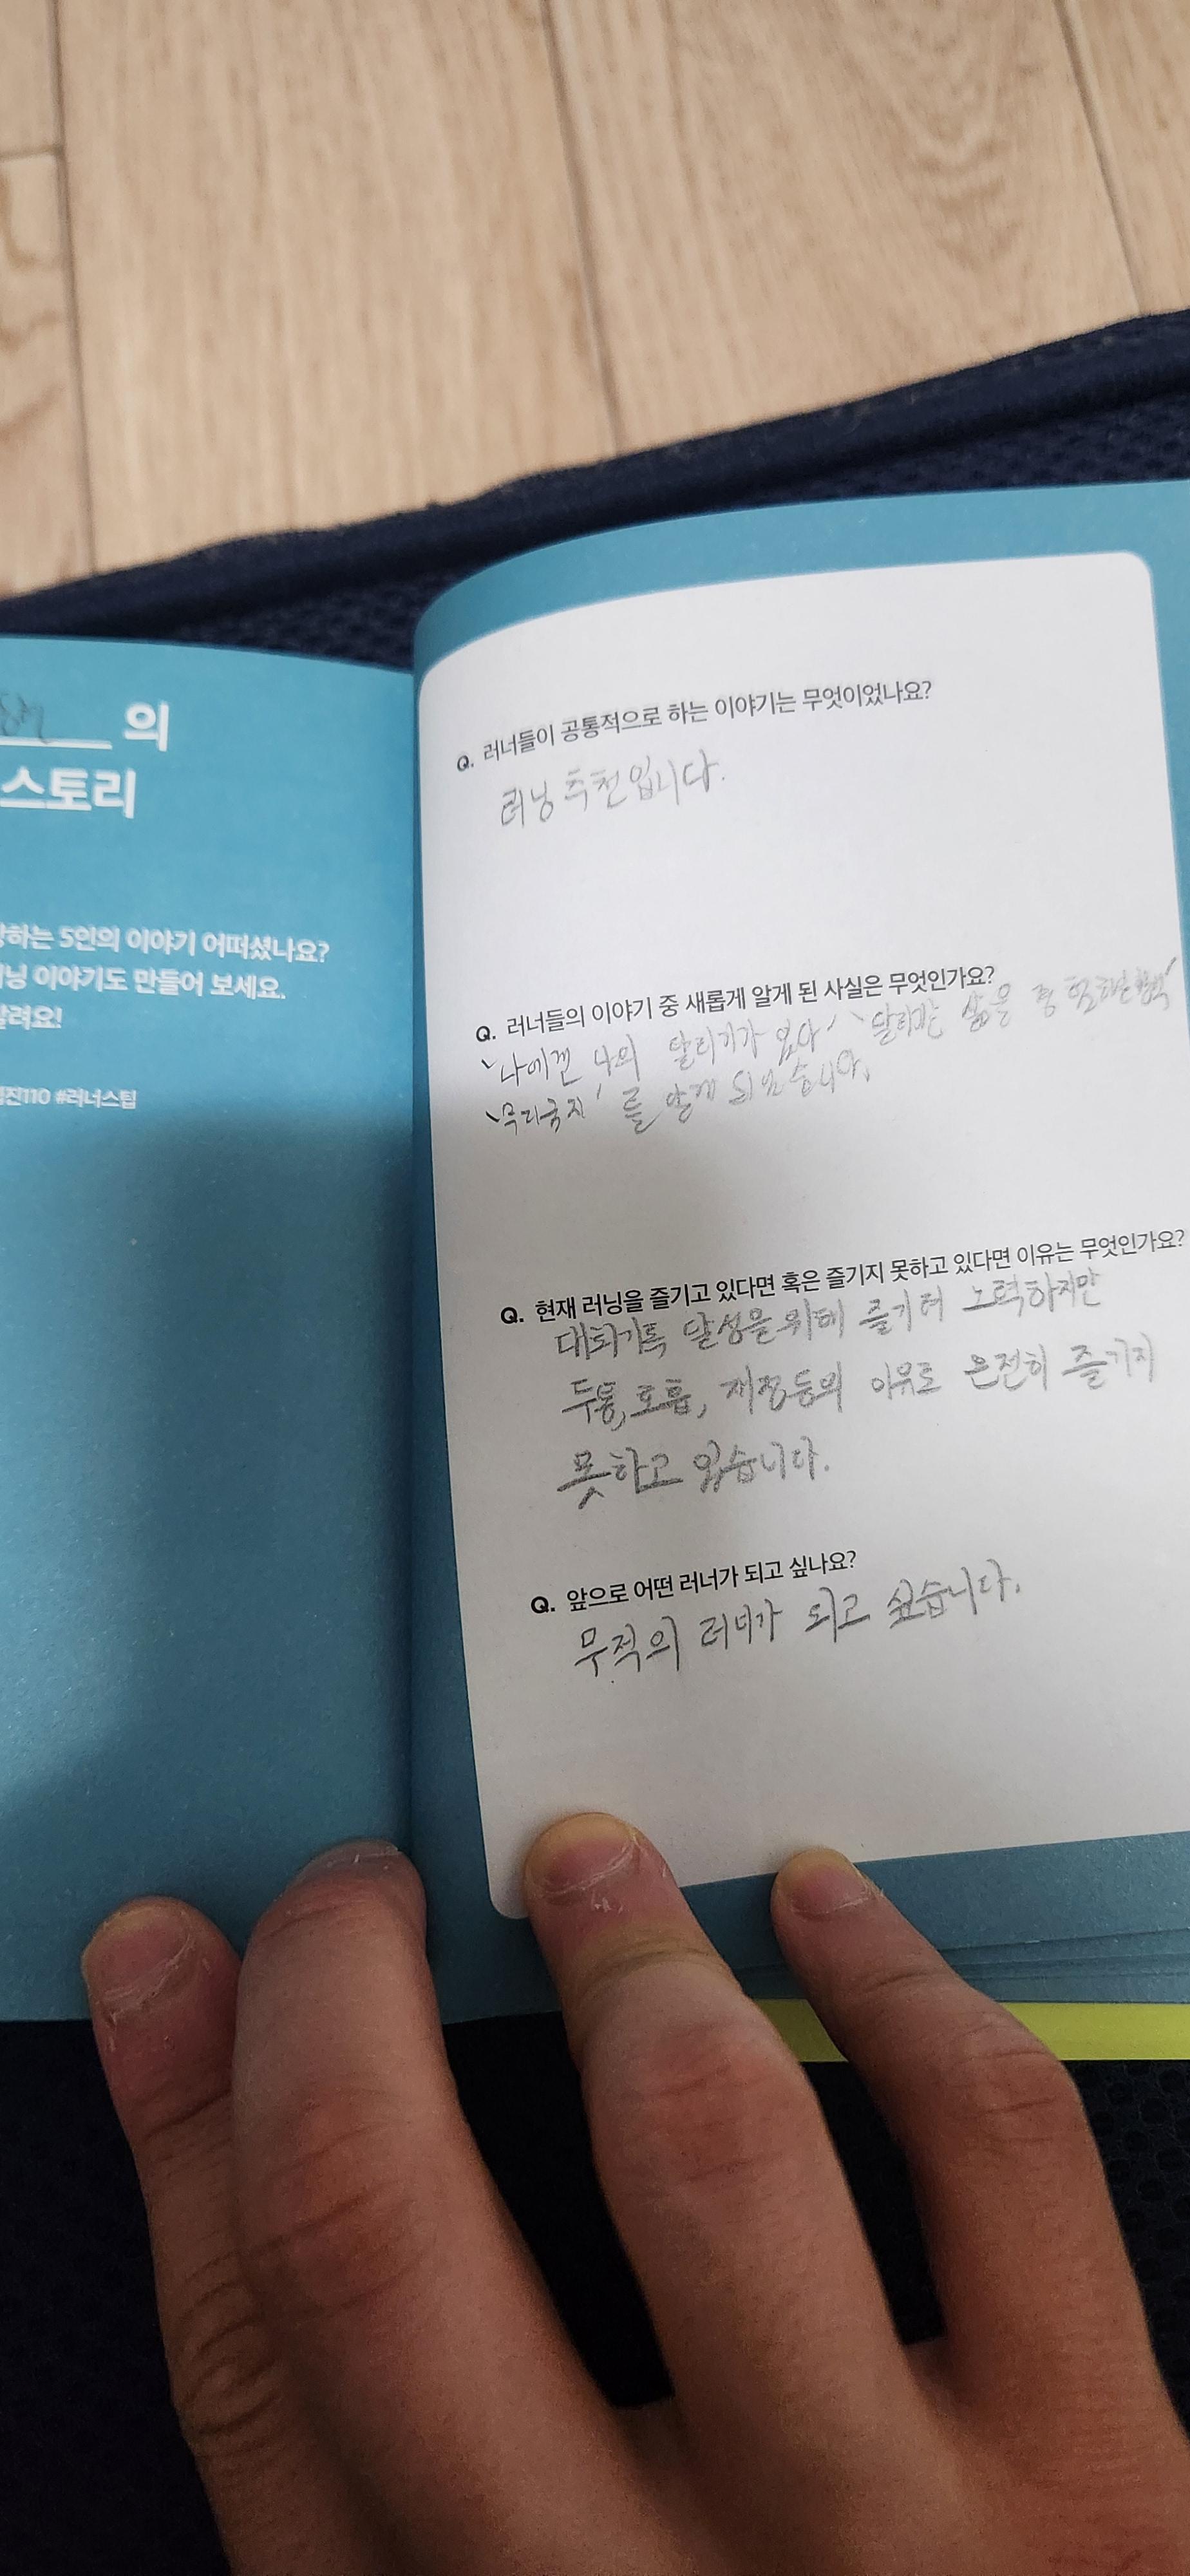 의
스토리
하는 5인의 이야기 어떠셨나요?
닝 이야기도 만들어 보세요.
달려요!
진110 #러너스팁
Q. 러너들이 공통적으로 하는 이야기는 무엇이었나요?
러닝 추천입니다.
Q. 러너들의 이야기 중 새롭게 알게 된 사실은 무엇인가요?
'나에겐 나의 달리기가 있다' '달리는 삶은
를 알게 되었습니다.
Q. 현재 러닝을 즐기고 있다면 혹은 즐기지 못하고 있다면 이유는 무엇인가요?
대회기록 달성을 위해 즐기려 노력하지만
두통, 호흡, 재정등의 이유로 온전히 즐기지
못하고 있습니다.
Q. 앞으로 어떤 러너가 되고 싶나요?
무적의 러너가 되고 싶습니다.